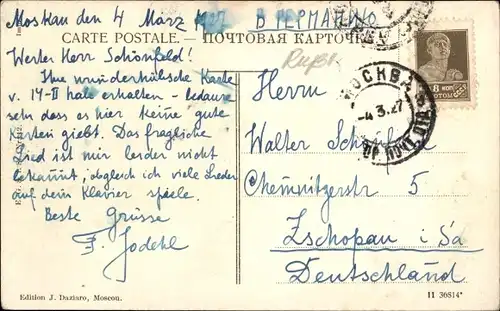 Moskau den 4 März 1927 В ГЕРМАНИЮ
CARTE POSTALE. — ПОЧТОВАЯ КАРТОЧКА
Werter Herr Schönfeld!
Ihre wunderhübsche Karte
v. 14-II habe erhalten – bedaure
sehr dass es hier keine gute
Karten giebt. Das fragliche
Lied ist mir leider nicht
bekannt, obgleich ich viele Lieder
auf dem Klavier spiele.
Beste Grüsse
F. Jodehl
Herrn
Walter Schönfeld
Chemnitzerstr 5
Zschopau i/Sa
Deutschland
МОСКВА
-4.3.27
8 КОП.
ЗОЛОТОМ
Edition J. Daziaro, Moscou.
11 36814*